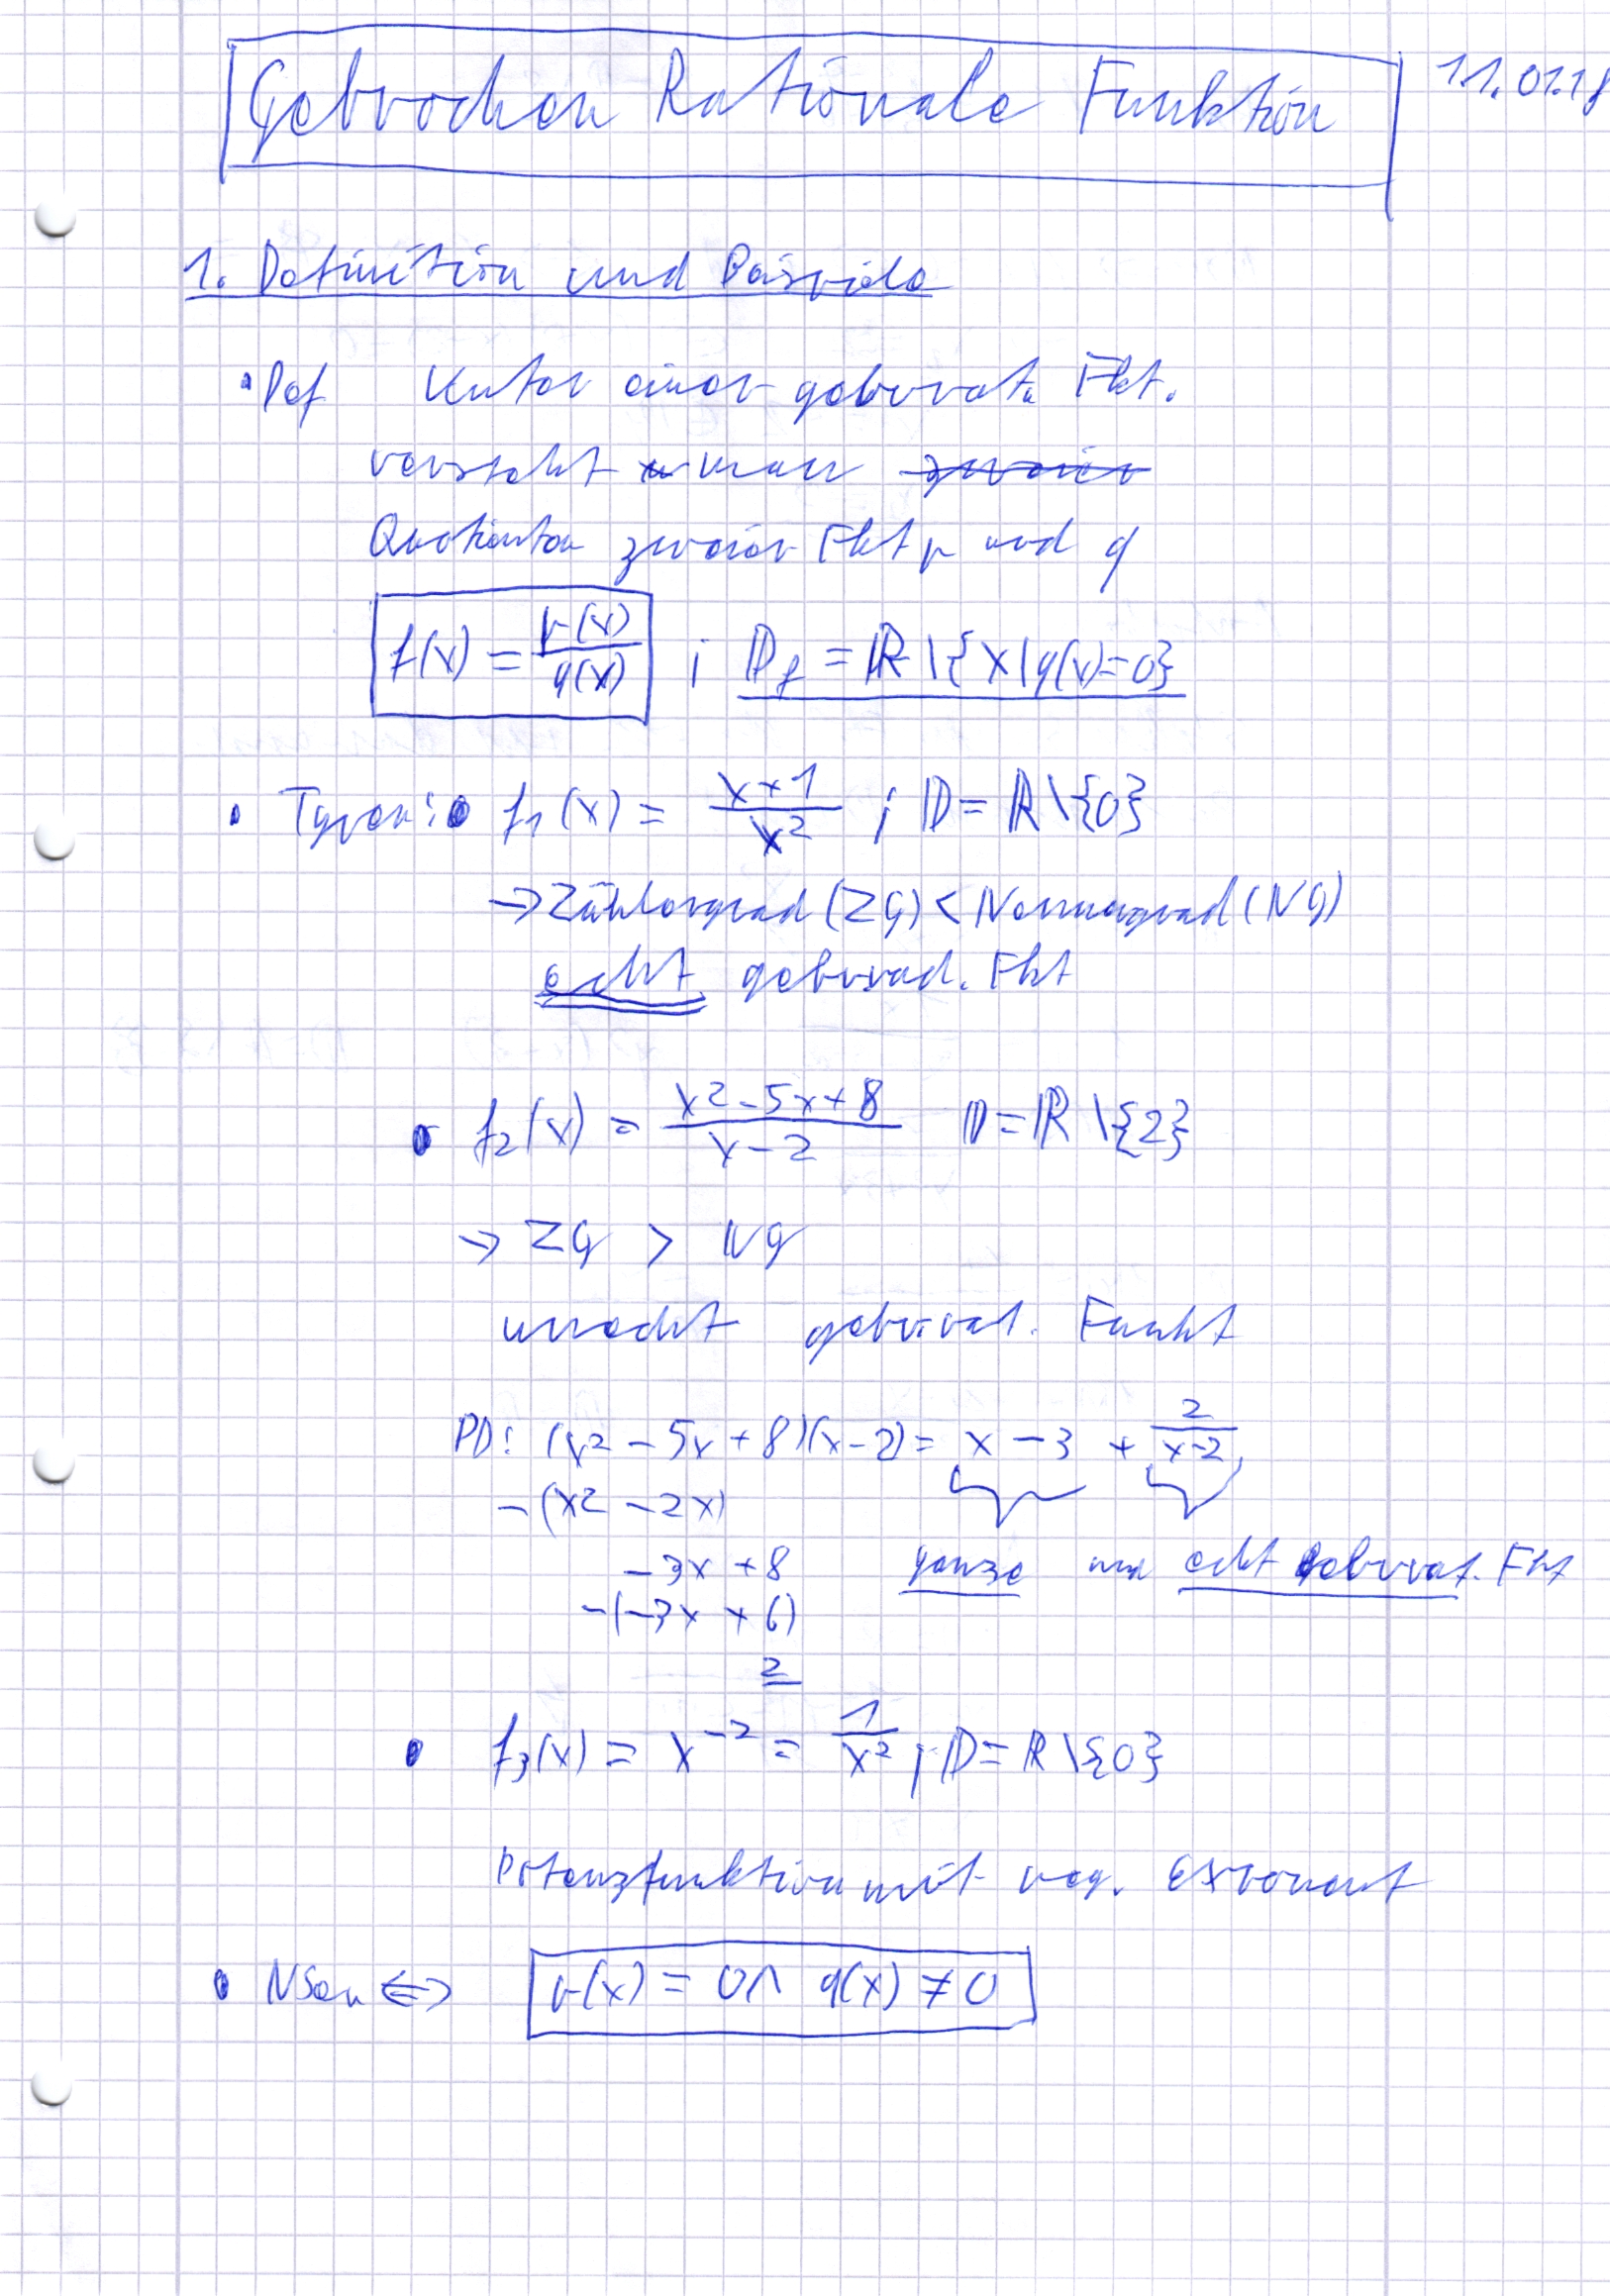 Gebrochen Rationale Funktion
11.01.18
1. Definition und Beispiele
• Def Unter einer gebr.rat. Fkt.
versteht man zweier
Quotienten zweier Fkt p und q
f(x) = p(x)/q(x) ; D_f = ℝ \ {x | q(x) = 0}
• Typen: • f₁(x) = (x+1)/x² ; D = ℝ \ {0}
→ Zählergrad (ZG) < Nennergrad (NG)
echt gebr.rat. Fkt
• f₂(x) = (x²-5x+8)/(x-2) D = ℝ \ {2}
→ ZG > NG
unecht gebr.rat. Funkt
PD: (x² - 5x + 8)(x-2) = x - 3 + 2/(x-2)
-(x² - 2x)
-3x + 8 ganze und echt gebr.rat. Fkt
-(-3x + 6)
2
• f₃(x) = x⁻² = 1/x² ; D = ℝ \ {0}
Potenzfunktion mit neg. Exponent
• NSen ⇔ p(x) = 0 ∧ q(x) ≠ 0